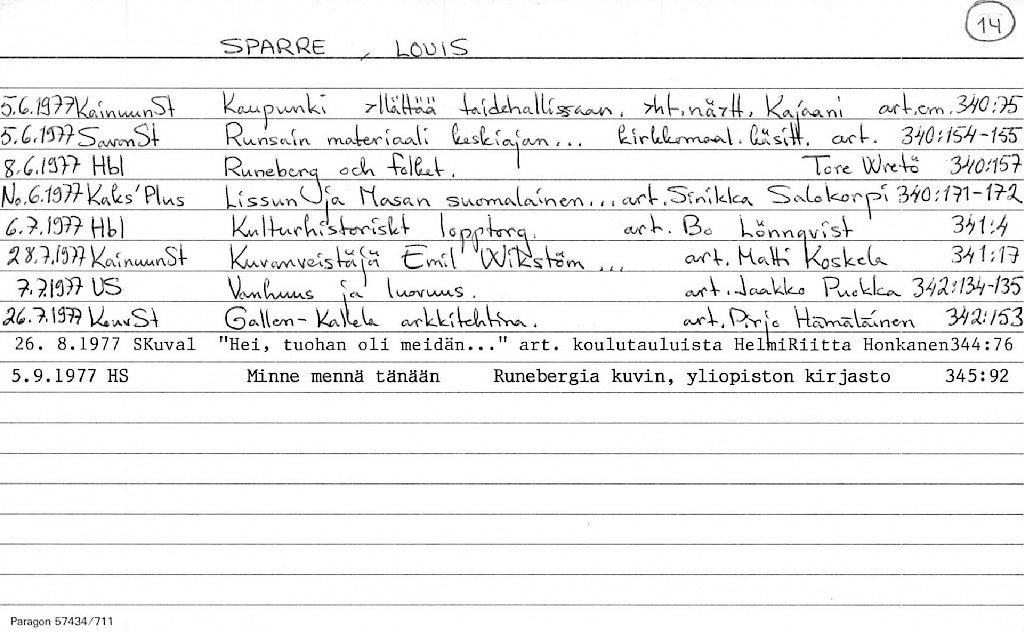 14
SPARRE, LOUIS
5.6.1977 KainuunSt Kaupunki yllättää taidehallissaan. yht.näytt. Kajaani art.cm. 340:75
5.6.1977 SavonSt Runsain materiaali keskiajan... kirkkomaal. käsitt. art. 340:154-155
8.6.1977 Hbl Runeberg och folket. Tore Wretö 340:157
No.6.1977 Kaks'Plus Lissun ja Masan suomalainen... art. Sinikka Salokorpi 340:171-172
6.7.1977 Hbl Kulturhistoriskt lopptorg. art. Bo Lönnqvist 341:4
28.7.1977 KainuunSt Kuvanveistäjä Emil Wikström ... art. Matti Koskela 341:17
7.7.1977 US Vanhuus ja luovuus. art. Jaakko Puokka 342:134-135
26.7.1977 KouvSt Gallen-Kallela arkkitehtina. art. Pirjo Hämäläinen 342:153
26. 8.1977 SKuval "Hei, tuohan oli meidän..." art. koulutauluista HelmiRiitta Honkanen344:76
5.9.1977 HS Minne mennä tänään Runebergia kuvin, yliopiston kirjasto 345:92
Paragon 57434/711